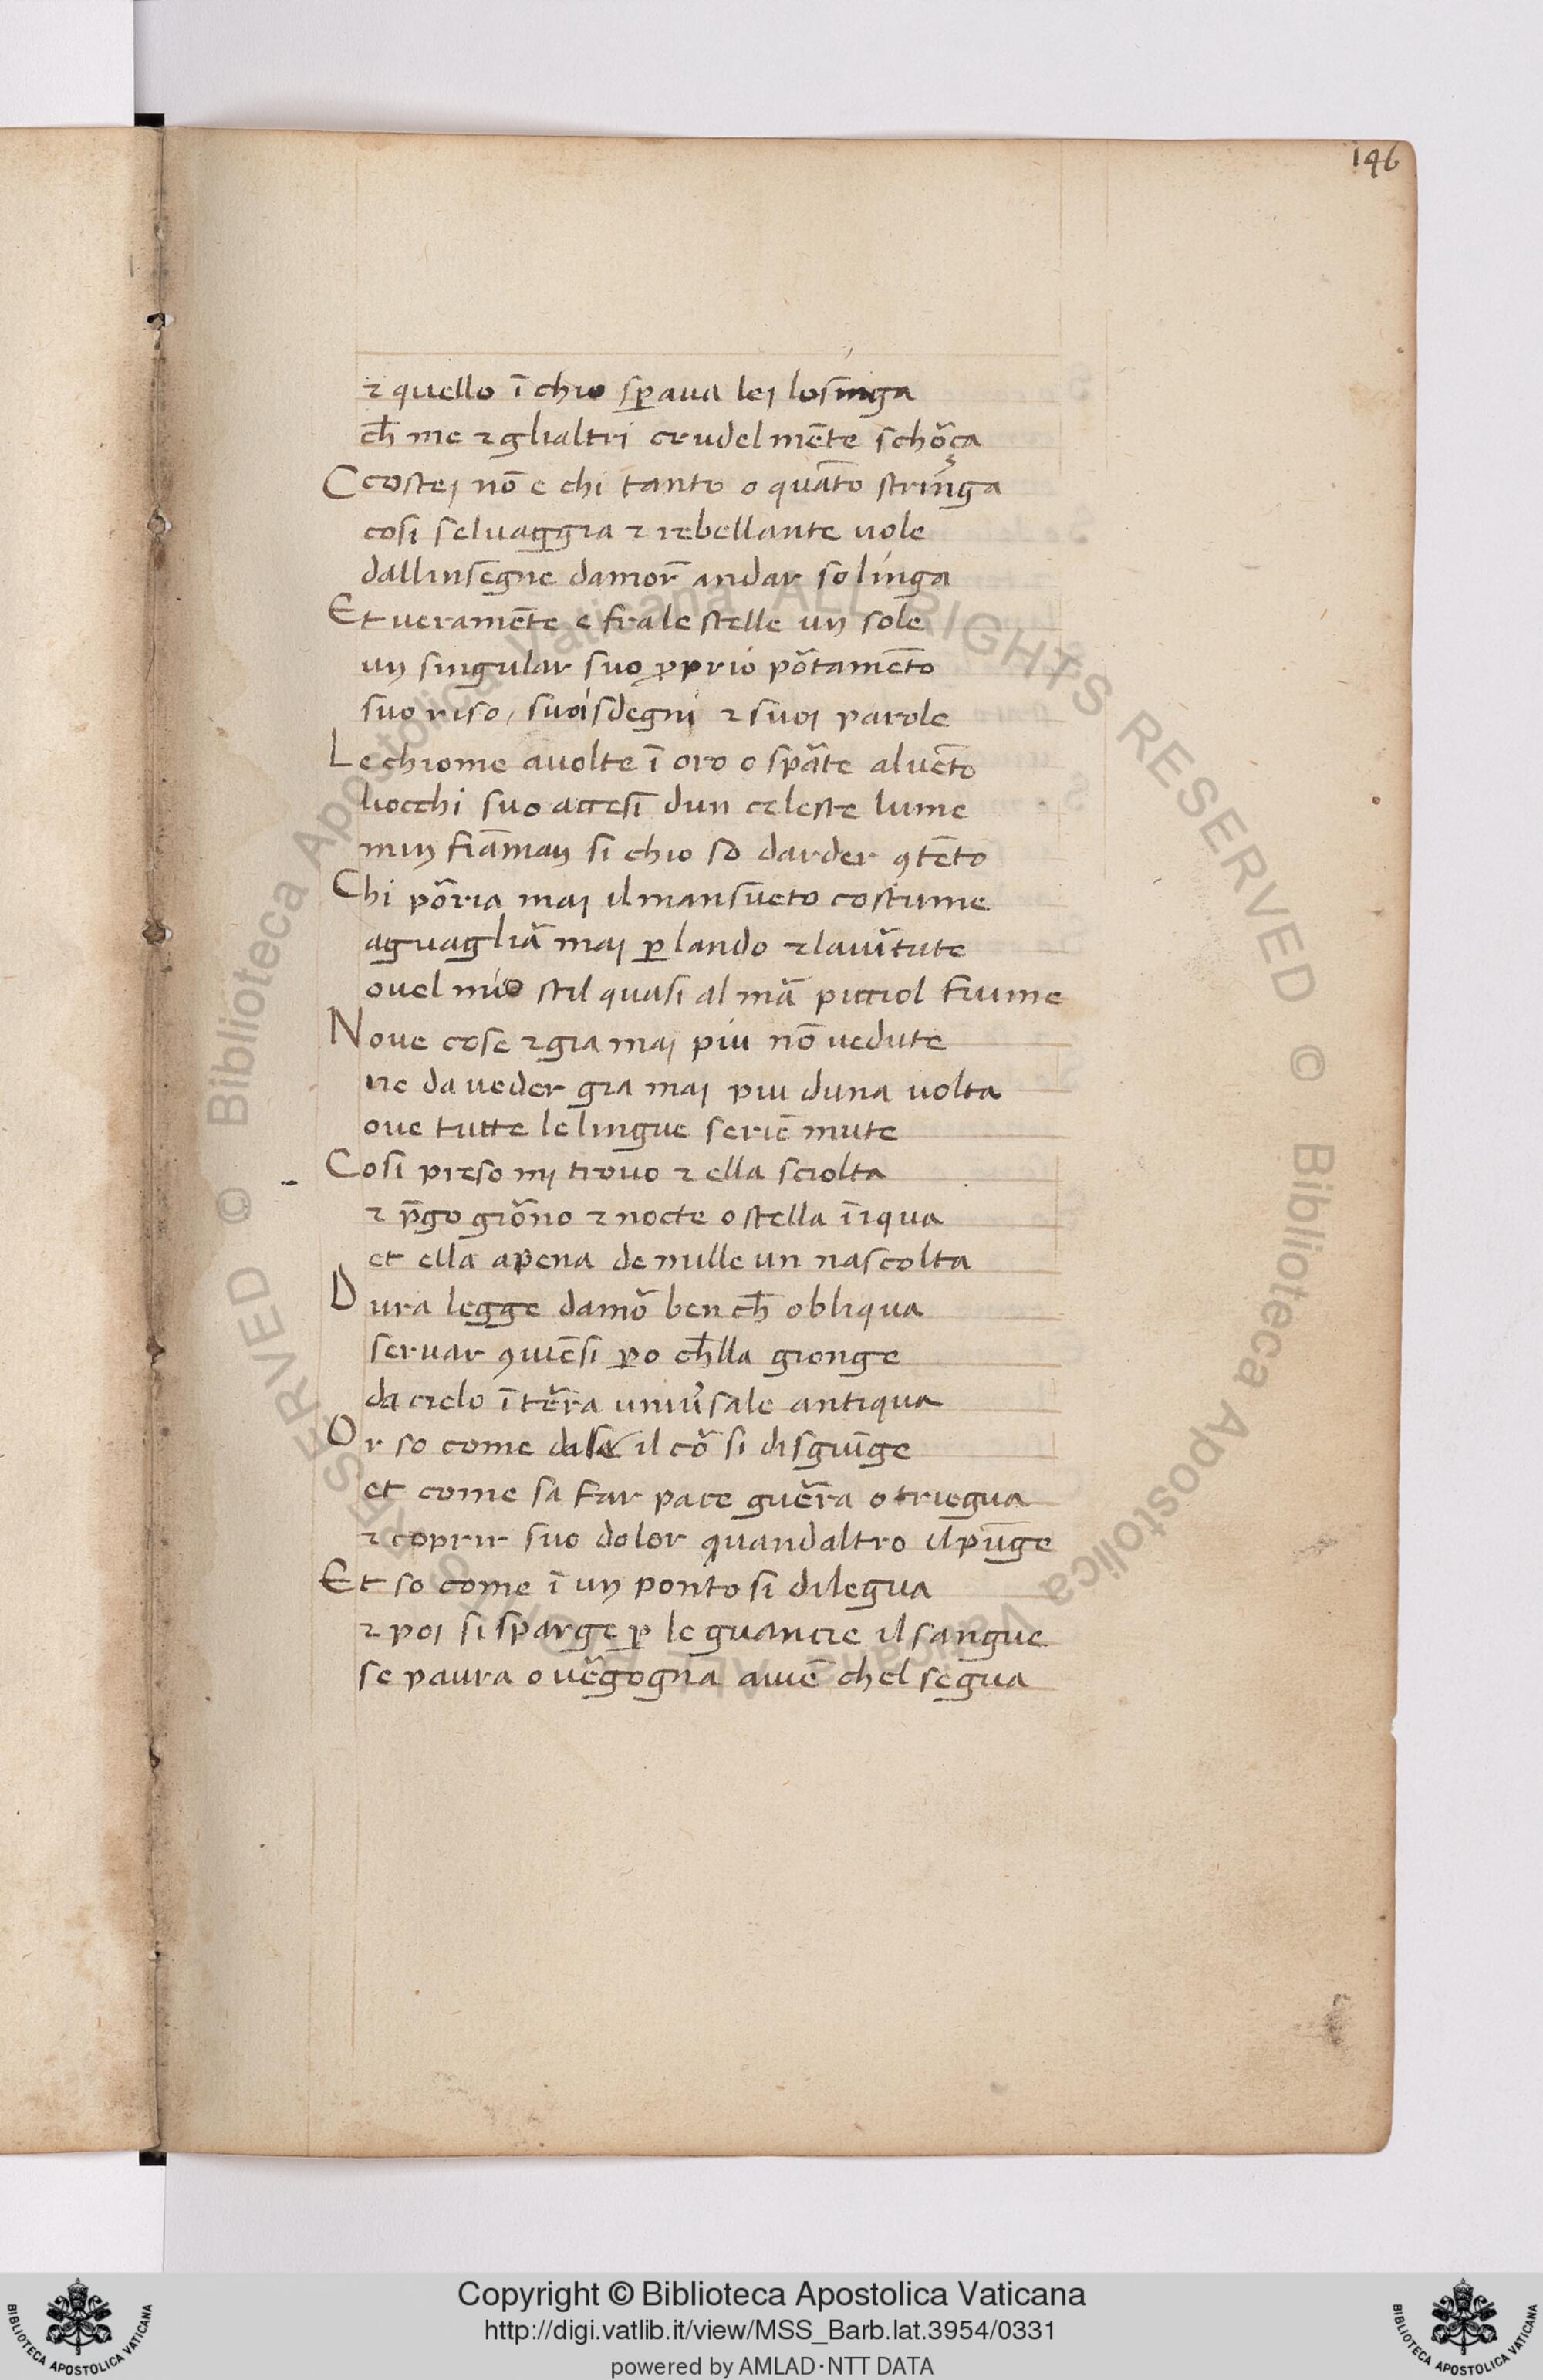 146
⁊ quello ī chio sꝑaua lei losinga
ch̄ me ⁊ glialtri crudelmēte schõça
Ccostei nō e chi tanto o quāto stringa
cosi seluaggia ⁊ rebellante uole
dallinsegne damor̃ andar solinga
Et ueramēte e frale stelle un sole
un singular suo ꝓprio põtamēto
suo riso, suoi sdegni ⁊ suoi parole
Le chiome auolte ī oro o spãte aluēto
liocchi suo accesi dun celeste lume
min fiāman si chio so darder ꝯtēto
Chi põria mai il mansueto costume
aguagliã mai ꝑlando ⁊ lauĩtute
ouel mio stil quasi al mã picciol fiume
Noue cose ⁊ gia mai piu nō uedute
ne da ueder gia mai piu duna uolta
oue tutte le lingue seriē mute
Cosi preso mi trouo ⁊ ella sciolta
⁊ p̄go giõno ⁊ nocte o stella īiqua
et ella apena de mille un nascolta
Dura legge damõ ben ch̄ obliqua
seruar ꝯuiēsi ꝑo ch̄lla gionge
da cielo ī tẽra uniũsale antiqua
Or so come da se il cõ si disgiūge
et come sa far pace guẽra o triegua
⁊ coprir suo dolor quandaltro il pūge
Et so come ī un ponto si dilegua
⁊ poi si sparge ꝑ le guancie il sangue
se paura o uẽgogna auiē chel segua
© Biblioteca Apostolica Vaticana ALL RIGHTS RESERVED © Biblioteca Apostolica Vaticana ALL RIGHTS RESERVED
Copyright © Biblioteca Apostolica Vaticana
http://digi.vatlib.it/view/MSS_Barb.lat.3954/0331
powered by AMLAD·NTT DATA
BIBLIOTECA APOSTOLICA VATICANA
BIBLIOTECA APOSTOLICA VATICANA